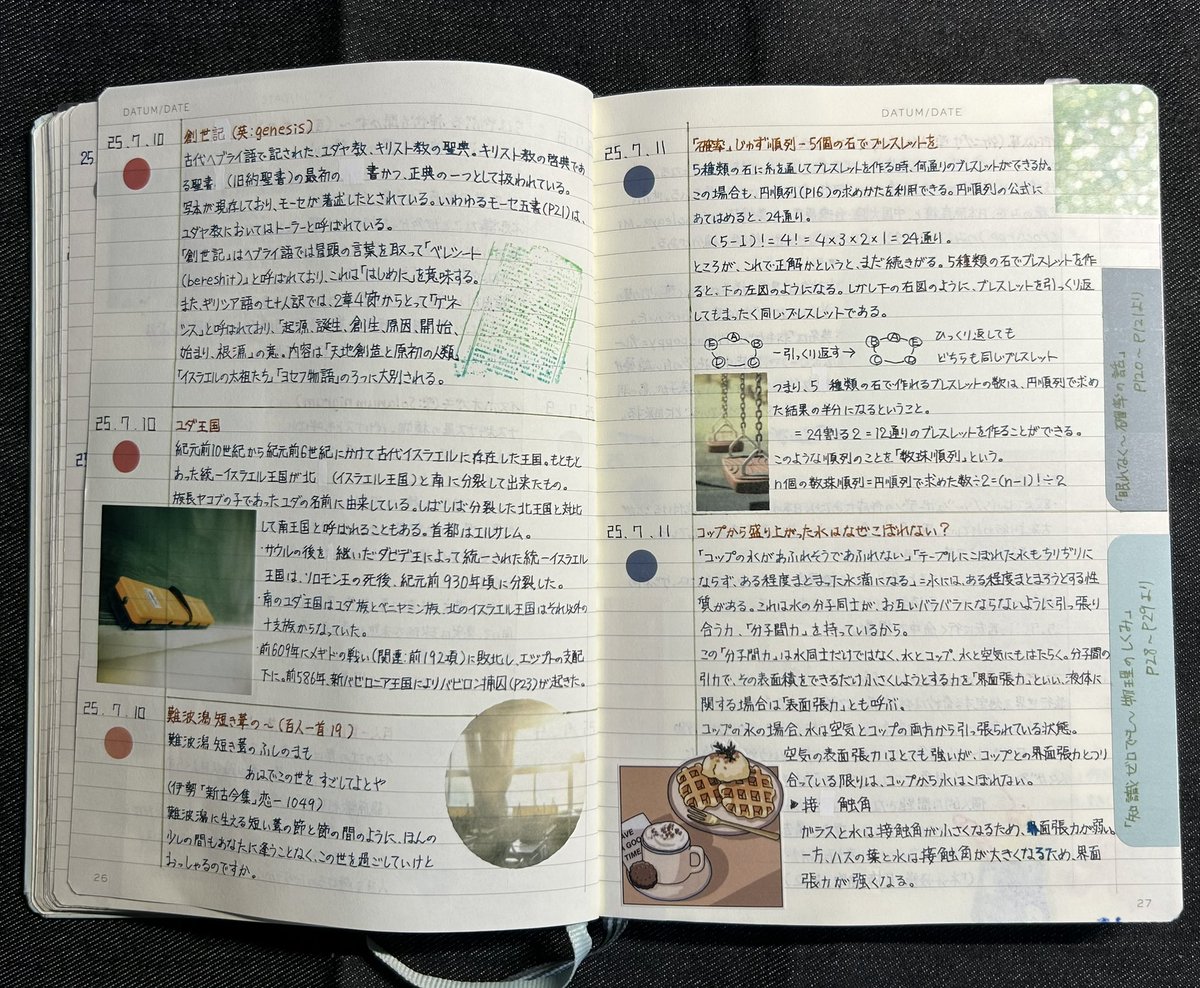 DATUM/DATE
25.7.10
創世記 (英:genesis)
古代ヘブライ語で記された、ユダヤ教、キリスト教の聖典。キリスト教の啓典であ
る聖書 (旧約聖書)の最初の 書かつ、正典の一つとして扱われている。
写本が現存しており、モーセが著述したとされている。いわゆるモーセ五書(P21)は、
ユダヤ教においてはトーラーと呼ばれている。
「創世記」はヘブライ語では冒頭の言葉を取って「ベレシート
(bereshit)」と呼ばれており、これは「はじめに」を意味する。
また、ギリシア語の七十人訳では、2章4節からとって「ゲネ
シス」と呼ばれており、「起源、誕生、創生、原因、開始、
始まり、根源」の意。内容は「天地創造と原初の人類」
「イスラエルの太祖たち」「ヨセフ物語」の3つに大別される。
25.7.10
ユダ王国
紀元前10世紀から紀元前6世紀にかけて古代イスラエルに存在した王国。もともと
あった統一イスラエル王国が北 (イスラエル王国)と南に分裂して出来たもの。
族長ヤコブの子であったユダの名前に由来している。しばしば分裂した北王国と対比
して南王国と呼ばれることもある。首都はエルサレム。
・サウルの後を継いだダビデ王によって統一された統一イスラエル
王国は、ソロモン王の死後、紀元前930年頃に分裂した。
・南のユダ王国はユダ族とベニヤミン族、北のイスラエル王国はそれ以外の
十支族からなっていた。
・前609年にメギドの戦い(関連:前192頃)に敗北し、エジプトの支配
下に。前586年、新バビロニア王国によりバビロン捕囚(P23)が起きた。
25.7.10
難波潟 短き葦の〜(百人一首19)
難波潟 短き葦の ふしのまも
あはでこの世を すごしてよとや
(伊勢『新古今集』恋-1049)
難波潟に生える短い葦の節と節の間のように、ほんの
少しの間もあなたに逢うことなく、この世を過ごしていけと
おっしゃるのですか。
26
DATUM/DATE
25.7.11
「確率」じゅず順列-5個の石でブレスレットを
5種類の石に糸を通してブレスレットを作る時、何通りのブレスレットができるか。
この場合も、円順列(P16)の求めかたを利用できる。円順列の公式に
あてはめると、24通り。
(5-1)!=4!=4×3×2×1=24通り。
ところが、これで正解かというと、まだ続きがる。5種類の石でブレスレットを作
ると、下の左図のようになる。しかし下の右図のように、ブレスレットを引っくり返
してもまったく同じブレスレットである。
E A B D C
-引っくり返す→
B A E C D
ひっくり返しても
どちらも同じブレスレット
つまり、5 種類の石で作れるブレスレットの数は、円順列で求め
た結果の半分になるということ。
=24割る2=12通りのブレスレットを作ることができる。
このような順列のことを「数珠順列」という。
n個の数珠順列=円順列で求めた数÷2=(n-1)!÷2
「眠れなくなる〜確率の話」
P120〜P121より
25.7.11
コップから盛り上がった水はなぜこぼれない?
「コップの水があふれそうであふれない」「テーブルにこぼれた水もちりぢりに
ならず、ある程度まとまった水滴になる」=水には、ある程度まとまろうとする性
質がある。これは水の分子同士が、お互いバラバラにならないように引っ張り
合う力、「分子間力」を持っているから。
この「分子間力」は水同士だけではなく、水とコップ、水と空気にもはたらく。分子間の
引力で、その表面積をできるだけ小さくしようとする力を「界面張力」といい、液体に
関する場合は「表面張力」とも呼ぶ。
コップの水の場合、水は空気とコップの両方から引っ張られている状態。
空気の表面張力はとても強いが、コップとの界面張力とつり
合っている限りは、コップから水はこぼれない。
▶接 触角
ガラスと水は接触角が小さくなるため、界面張力が弱い。
一方、ハスの葉と水は接触角が大きくなるため、界面
張力が強くなる。
HAVE
A GOOD
TIME
「知識ゼロでも〜物理のしくみ」
P28〜P29より
27